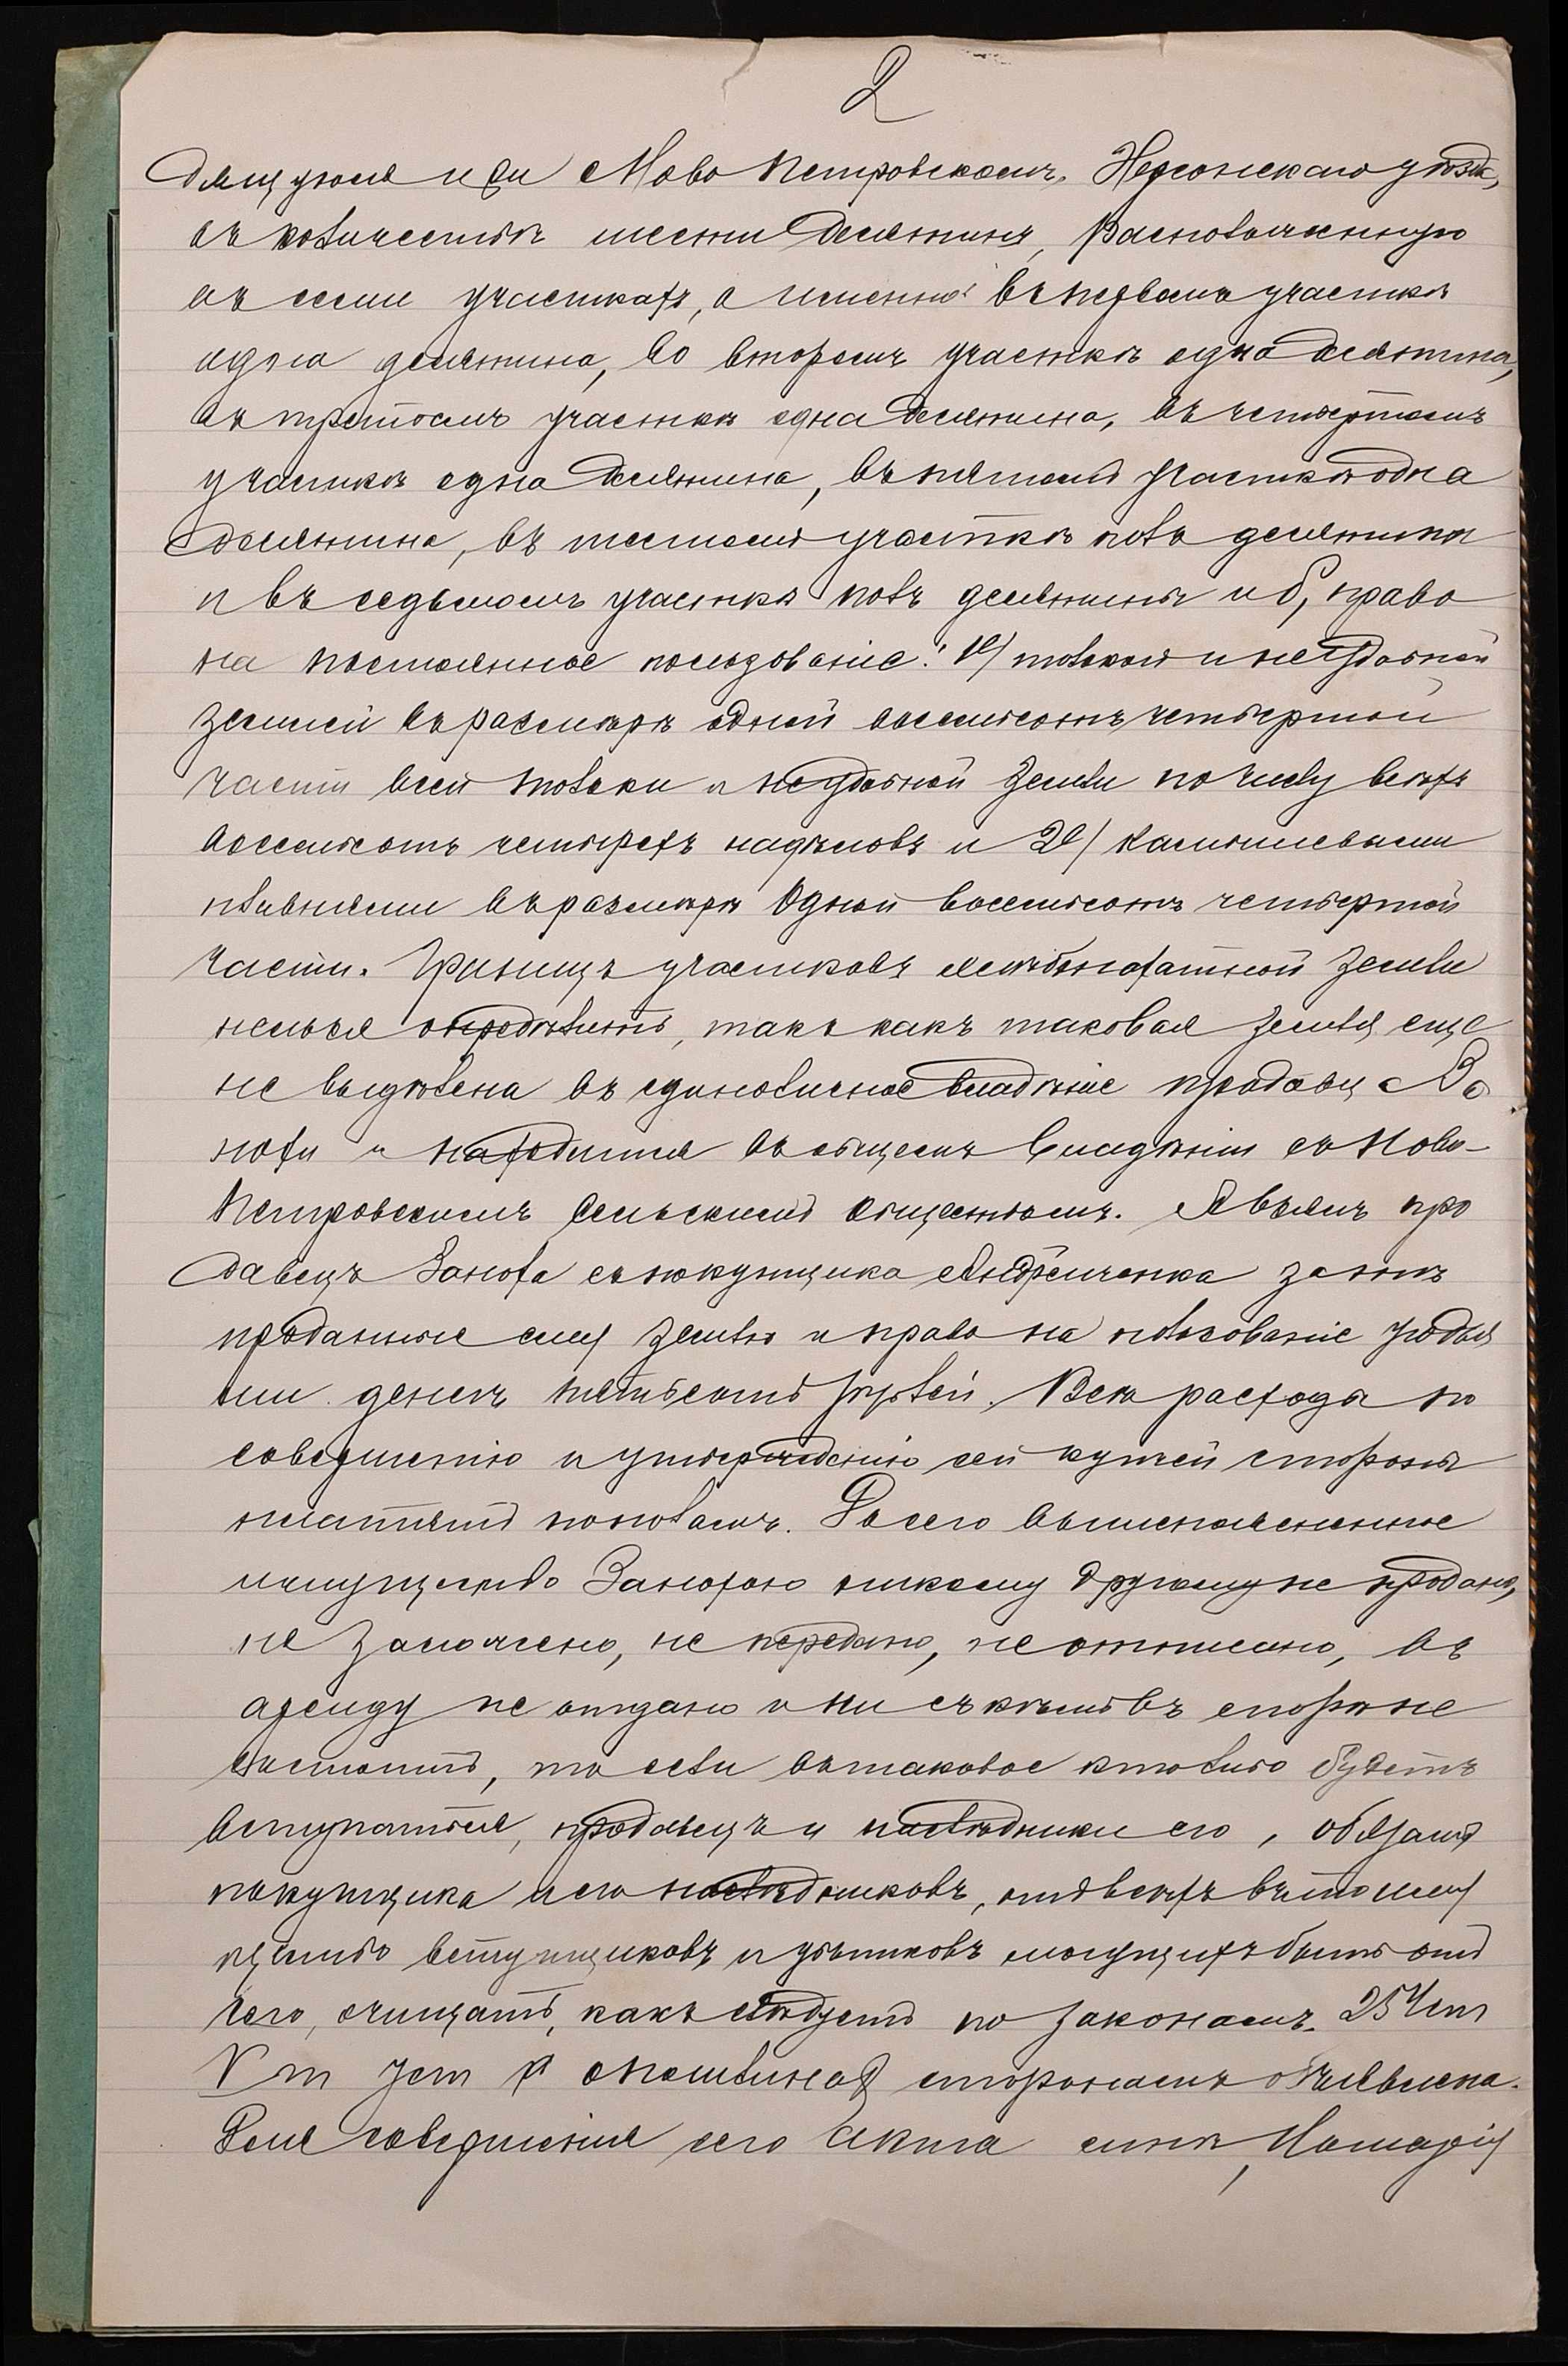 2
дящуюся при с. Ново Петровскомъ, Херсонскаго уѣзда,
въ количествѣ шести десятинъ, расположенную
въ семи участкахъ, а именно: въ первомъ участкѣ
одна десятина, во второмъ участкѣ одна десятина,
въ третьемъ участкѣ одна десятина, въ четвертомъ
участкѣ одна десятина, въ пятомъ участкѣ одна
десятина, въ шестомъ участкѣ полъ десятины
и въ седьмомъ участкѣ полъ десятины и б, право
на постоянное пользованіе: 1е/ толокой и неудобной
землей въ размѣрѣ одной восемьсотъ четвертой
части всей толоки и неудобной земли по числу всѣхъ
восемьсотъ четырехъ надѣловъ и 2е/ камышевыми
плавнями въ размѣрѣ одной восемьсотъ четвертой
части. Границъ участковъ пахатной земли
нельзя опредѣлить, такъ какъ таковая земля еще
не выдѣлена въ единоличное владѣніе продавца За
нохи и находится въ общемъ владѣніи съ Ново-
Петровскимъ сельскимъ обществомъ. Взялъ про
давецъ Заноха съ покупщика Андрейченка за тѣ
проданные ему землю и право на пользованіе угодья
ми денегъ пятьсотъ рублей. Всѣ расходы по
совершенію и утвержденію сей купчей стороны
платятъ пополамъ. До сего вышеположенное
имущество Занохою никому другому не продано,
не заложено, не передано, не отписано, въ
аренду не отдано и ни съ кѣмъ въ спорѣ не
состоитъ, то если въ таковое кто либо будетъ
вступаться, продавецъ и наслѣдники его, обязаны
покупщика и его наслѣдниковъ, отъ всѣхъ въ то иму
щество вступщиковъ и убытковъ могущихъ быть отъ
того, очищать, какъ слѣдуетъ по законамъ. 254 ст
V т Уст о пошлинах сторонамъ объявлена.
Для совершенія сего акта ко мнѣ, Нотаріу